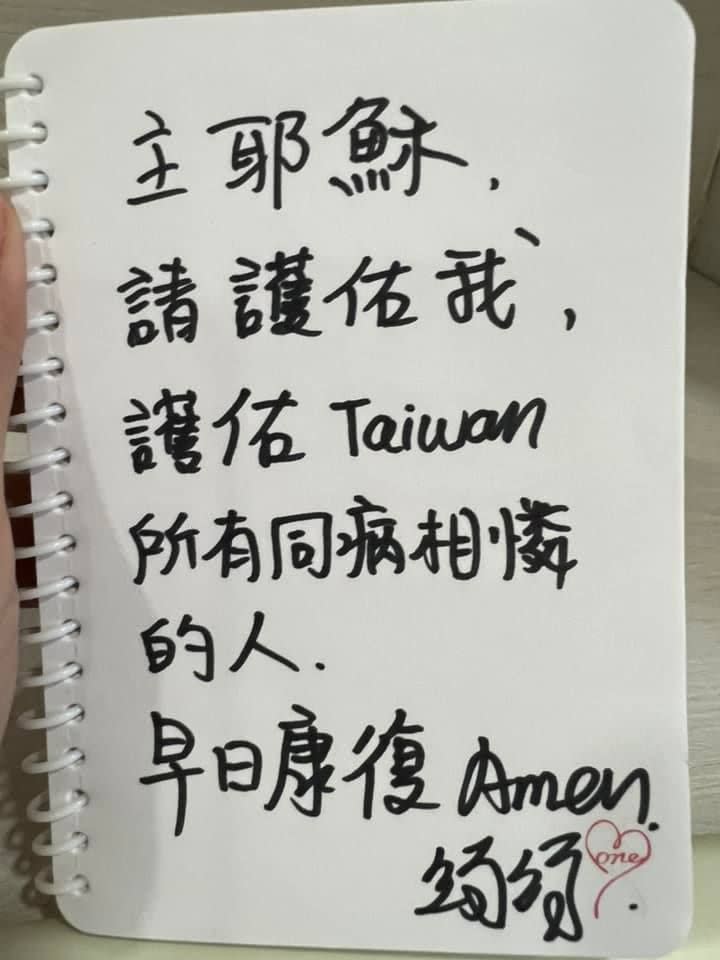 主耶穌,
請護佑我,
護佑 Taiwan
所有同病相憐
的人.
早日康復 Amen.
one